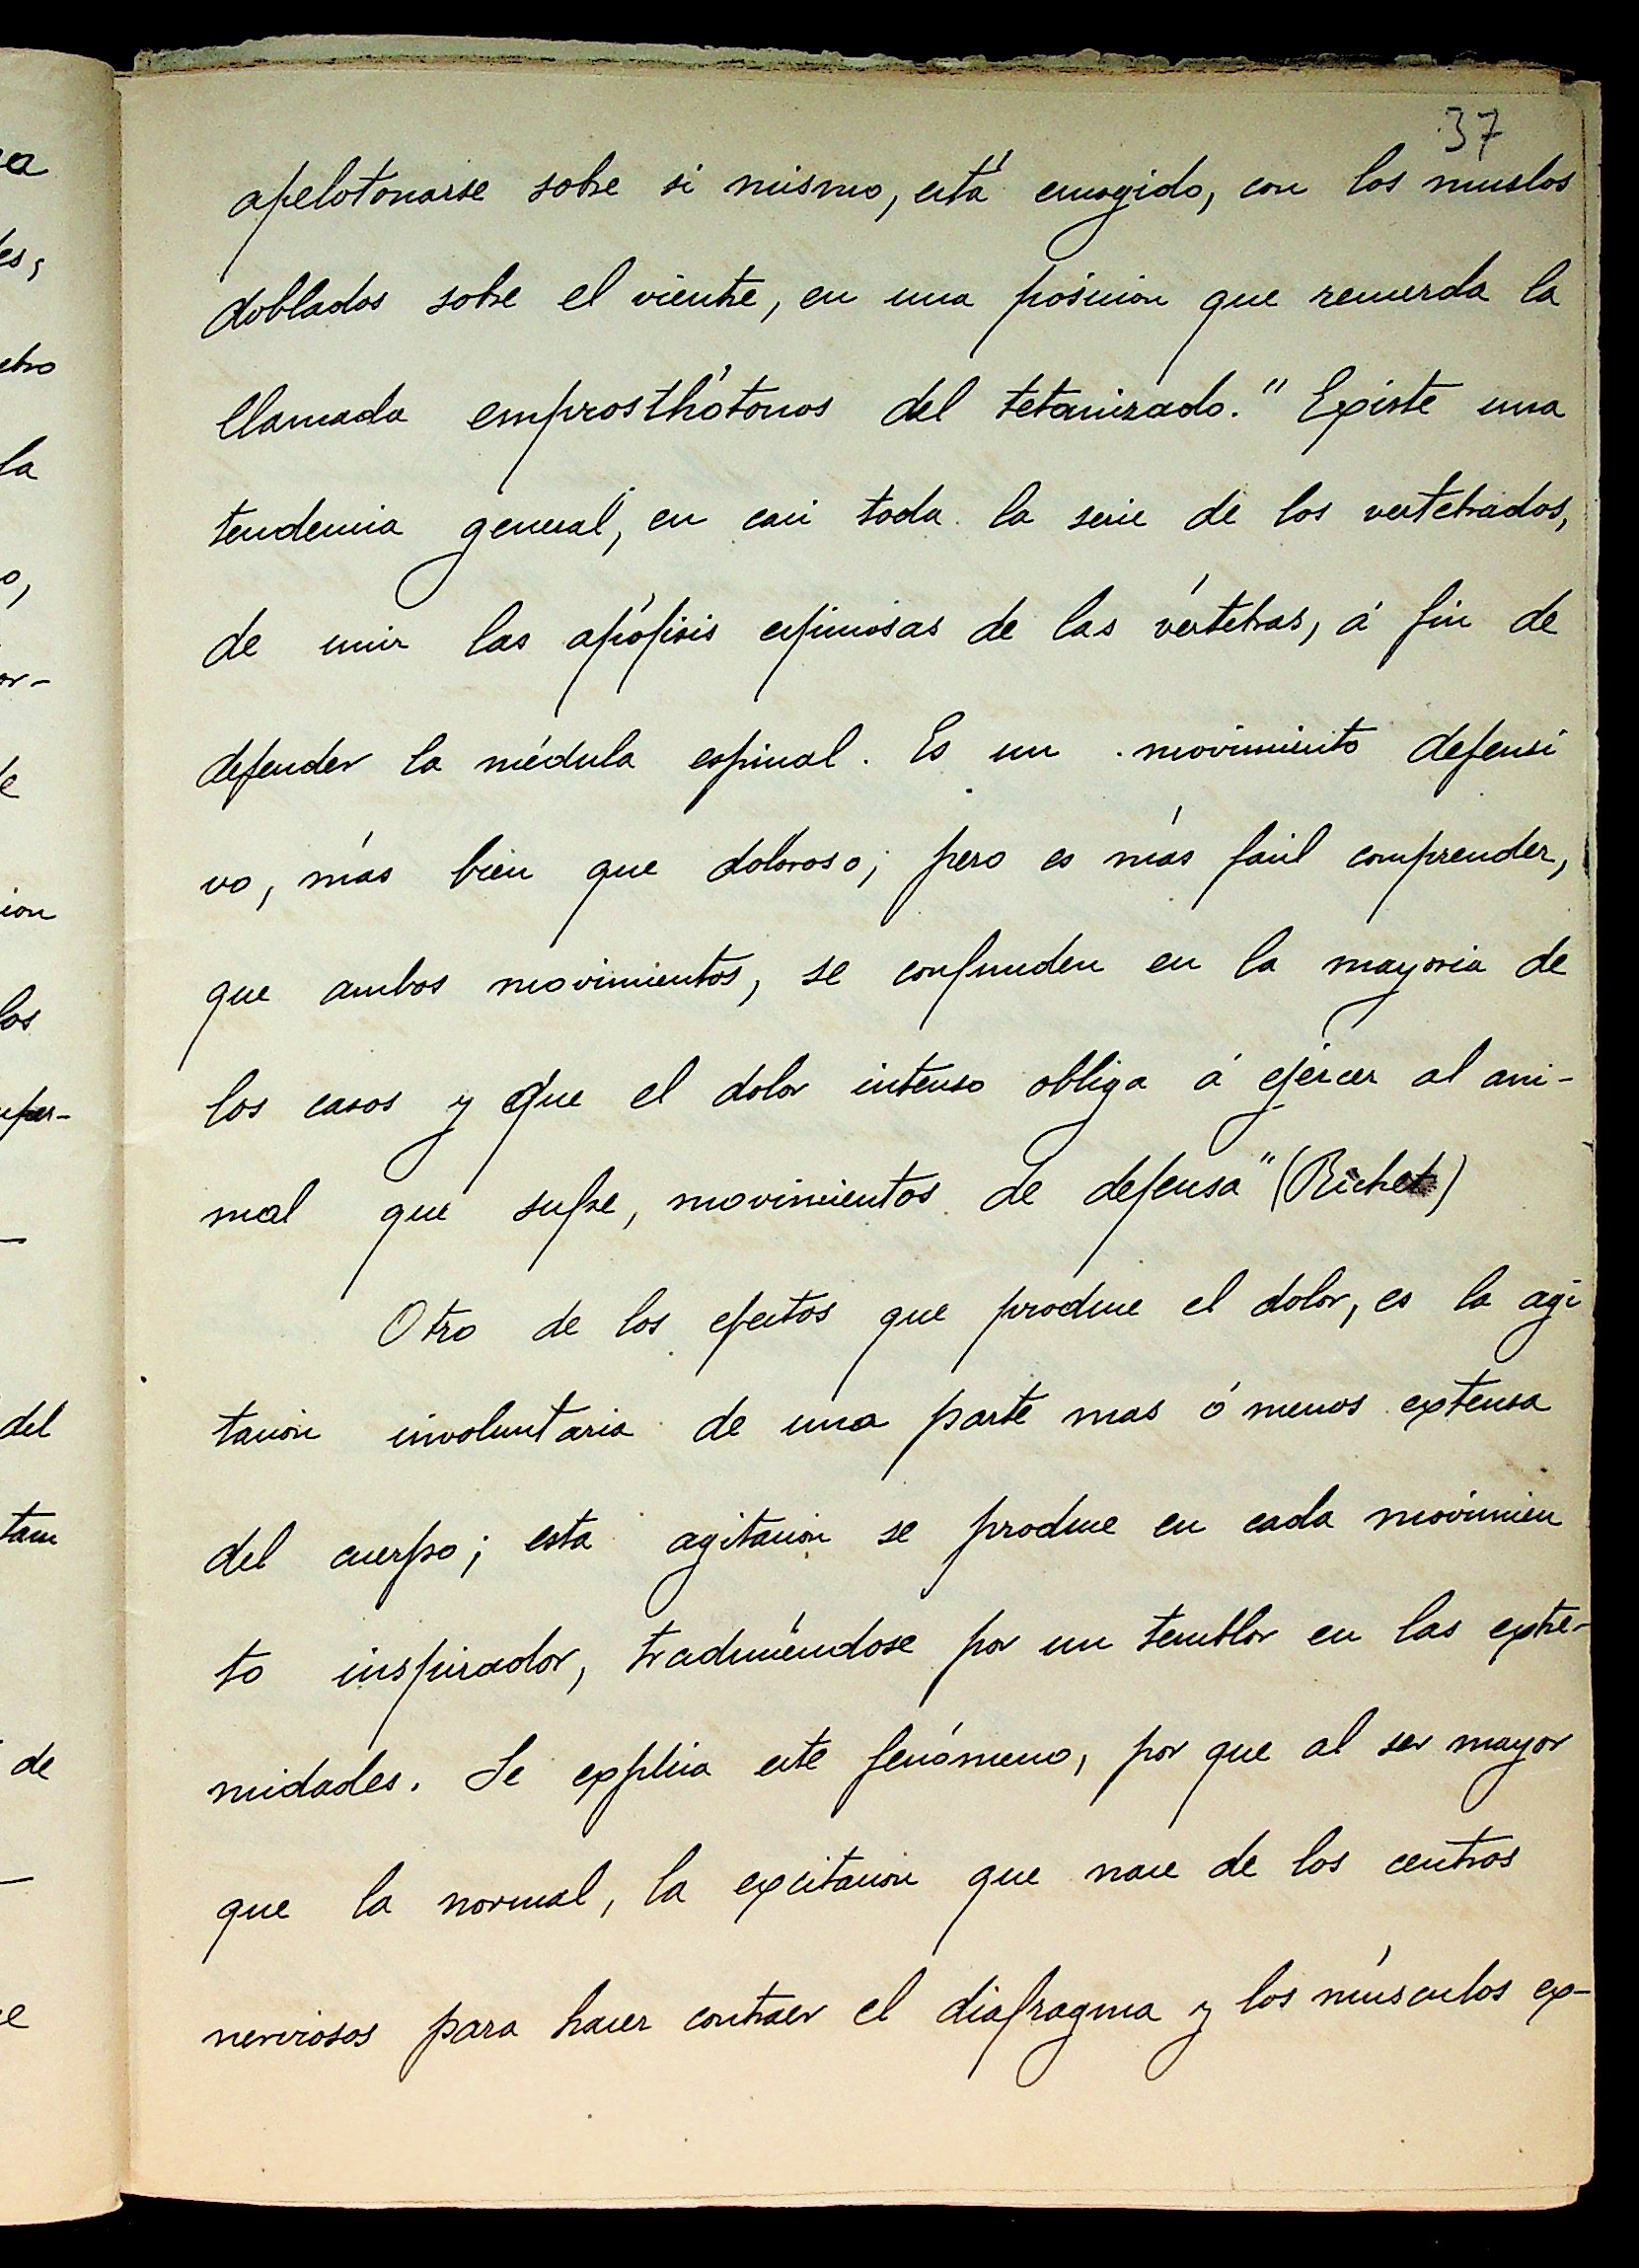 37
apelotonarse sobre si mismo, está encogido, con los muslos
doblados sobre el vientre, en una posicion que recuerda la
llamada emprosthótonos del tetanizado." Existe una
tendencia general, en casi toda la serie de los vertebrados,
de unir las apófisis espinosas de las vértebras, á fin de
defender la médula espinal. Es un movimiento defensi
vo, más bien que doloroso; pero es más fácil comprender,
que ambos movimientos, se confunden en la mayoria de
los casos y que el dolor intenso obliga á ejercer al ani-
mal que sufre, movimientos de defensa" (Richet)
Otro de los efectos que produce el dolor, es la agi
tacion involuntaria de una parte mas ó menos extensa
del cuerpo; esta agitacion se produce en cada movimien
to inspirador, traduciéndose por un temblor en las extre-
midades. Se explica este fenómeno, por que al ser mayor
que la normal, la excitacion que nace de los centros
nerviosos para hacer contraer el diafragma y los músculos ex-